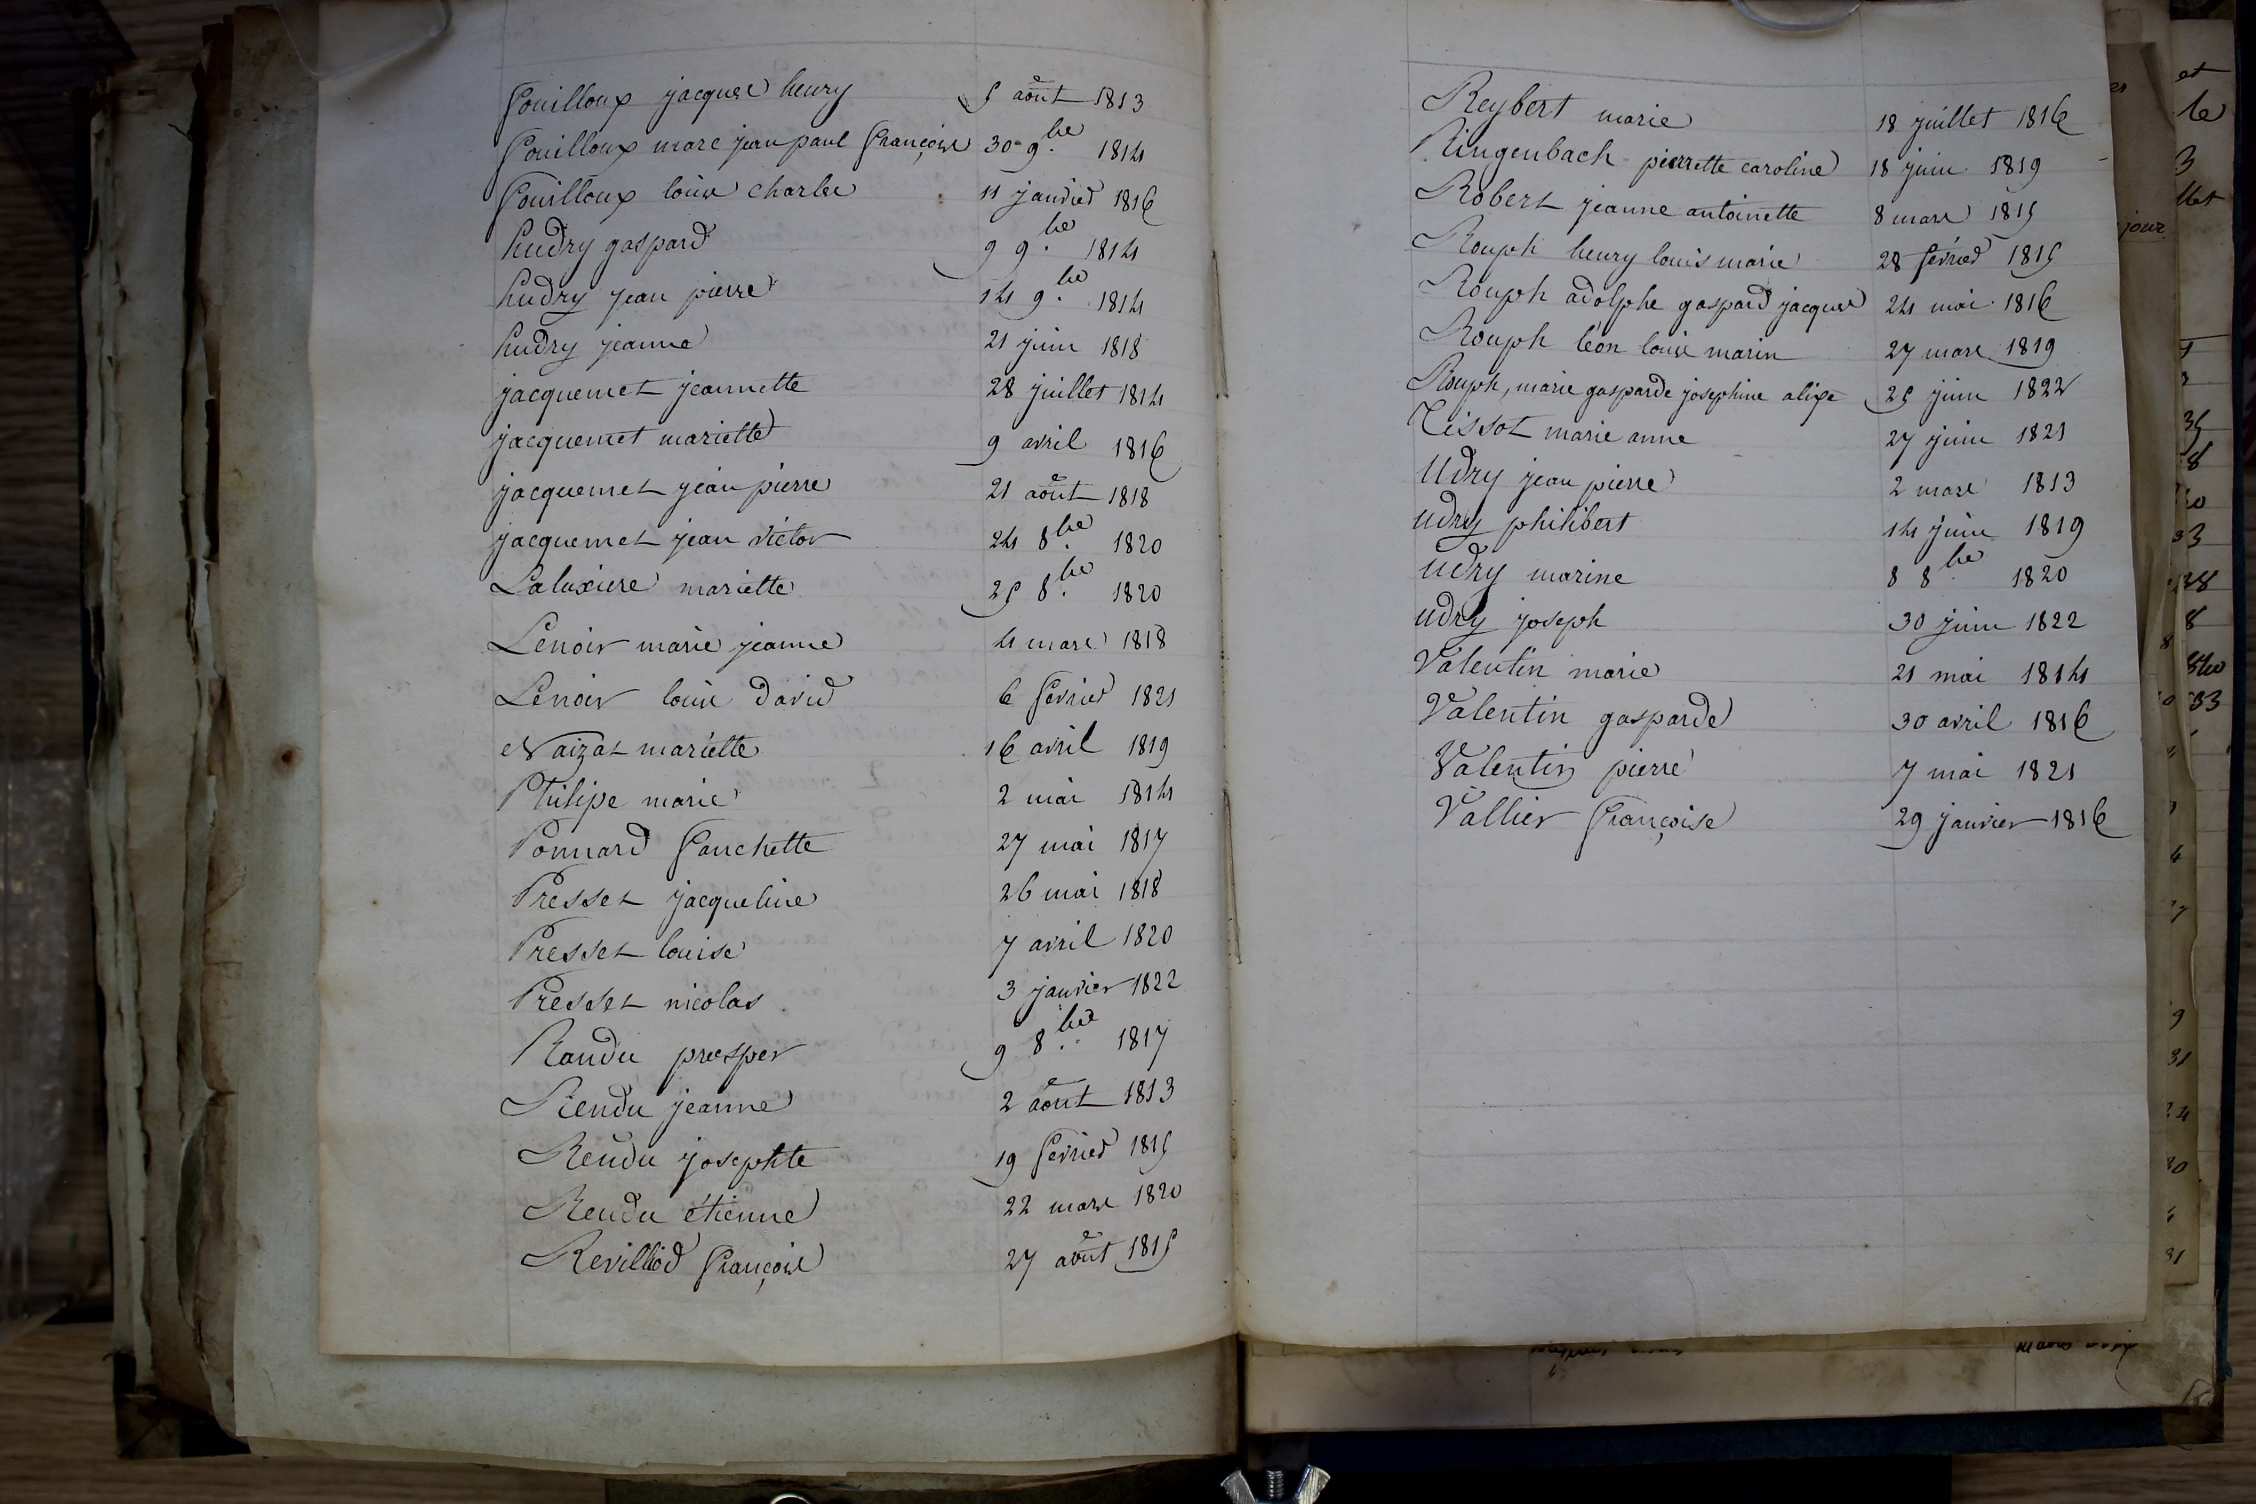 Fouilloux jacques henry 5 août 1813
Fouilloux marc jean paul françois 30 9.bre 1814
Fouilloux louis charles 11 janvier 1816
hudry gaspard 9 9.bre 1814
hudry jean pierre 14 9.bre 1814
hudry jeanne 21 juin 1818
jacquemet jeannette 28 juillet 1814
jacquemet mariette 9 avril 1816
jacquemet jean pierre 21 août 1818
jacquemet jean victor 24 8.bre 1820
mariette 25 8.bre 1820
Lenoir marie jeanne 4 mars 1818
Lenoir louis david 6 fevrier 1821
Naizat mariette 16 avril 1819
Philipe marie 2 mai 1814
Ponnard fanchette 27 mai 1817
Presset jacqueline 26 mai 1818
Presset louise 7 avril 1820
Presset nicolas 3 janvier 1822
Randu prosper 9 8.bre 1817
Rendu jeanne 2 août 1813
Rendu josephte 19 fevrier 1815
Rendu étienne 22 mars 1820
Revilliod françois 27 août 1815
Reybert marie 18 juillet 1816
Ringenbach pierrette caroline 18 juin 1819
Robert jeanne antoinette 8 mars 1815
Rouph henry louis marie 28 février 1815
Rouph adolphe gaspard jacques 24 mai 1816
Rouph léon louis marin 27 mars 1819
Rouph, marie gasparde josephine alixe 25 juin 1822
Tissot marie anne 27 juin 1821
Udry jean pierre 2 mars 1813
udry philibert 14 juin 1819
udry marine 8 8bre 1820
udry joseph 30 juin 1822
Valentin marie 21 mai 1814
Valentin gasparde 30 avril 1816
Valentin pierre 7 mai 1821
Vallier françoise 29 janvier 1816